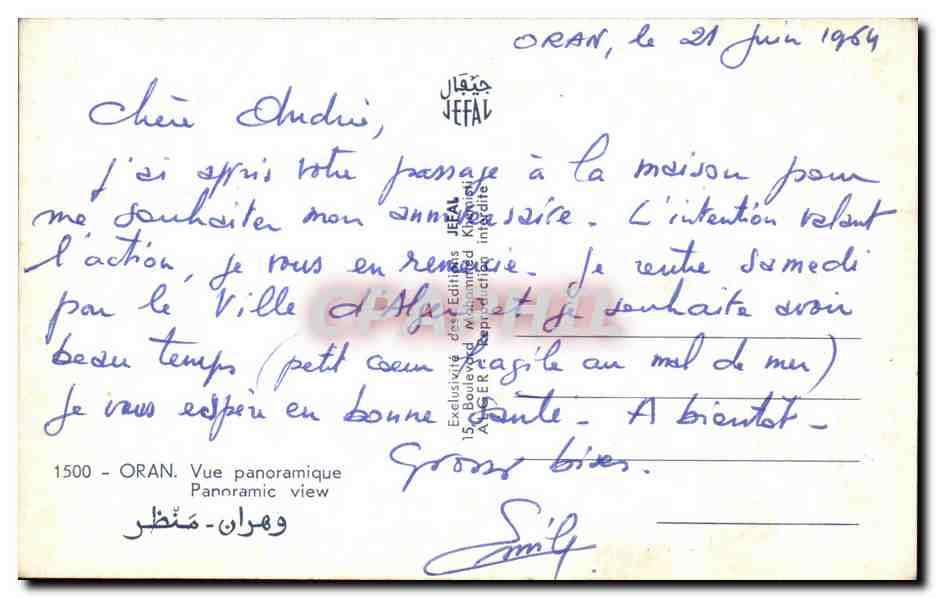 ORAN, le 21 Juin 1964
جيفال
JEFAL
Chère Andrée,
J'ai appris votre passage à la maison pour
me souhaiter mon anniversaire. L'intention valant
l'action, je vous en remercie. Je rentre samedi
par le Ville d'Alger et je souhaite avoir
beau temps (petit coeur fragile au mal de mer)
Je vous espère en bonne santé. A bientôt -
Grosses bises.
1500 - ORAN. Vue panoramique
Panoramic view
وهران - منظر
Exclusivité des Editions JEFAL
15, Boulevard Mohammed Khemisti
ALGER Reproduction interdite
CPARAMA